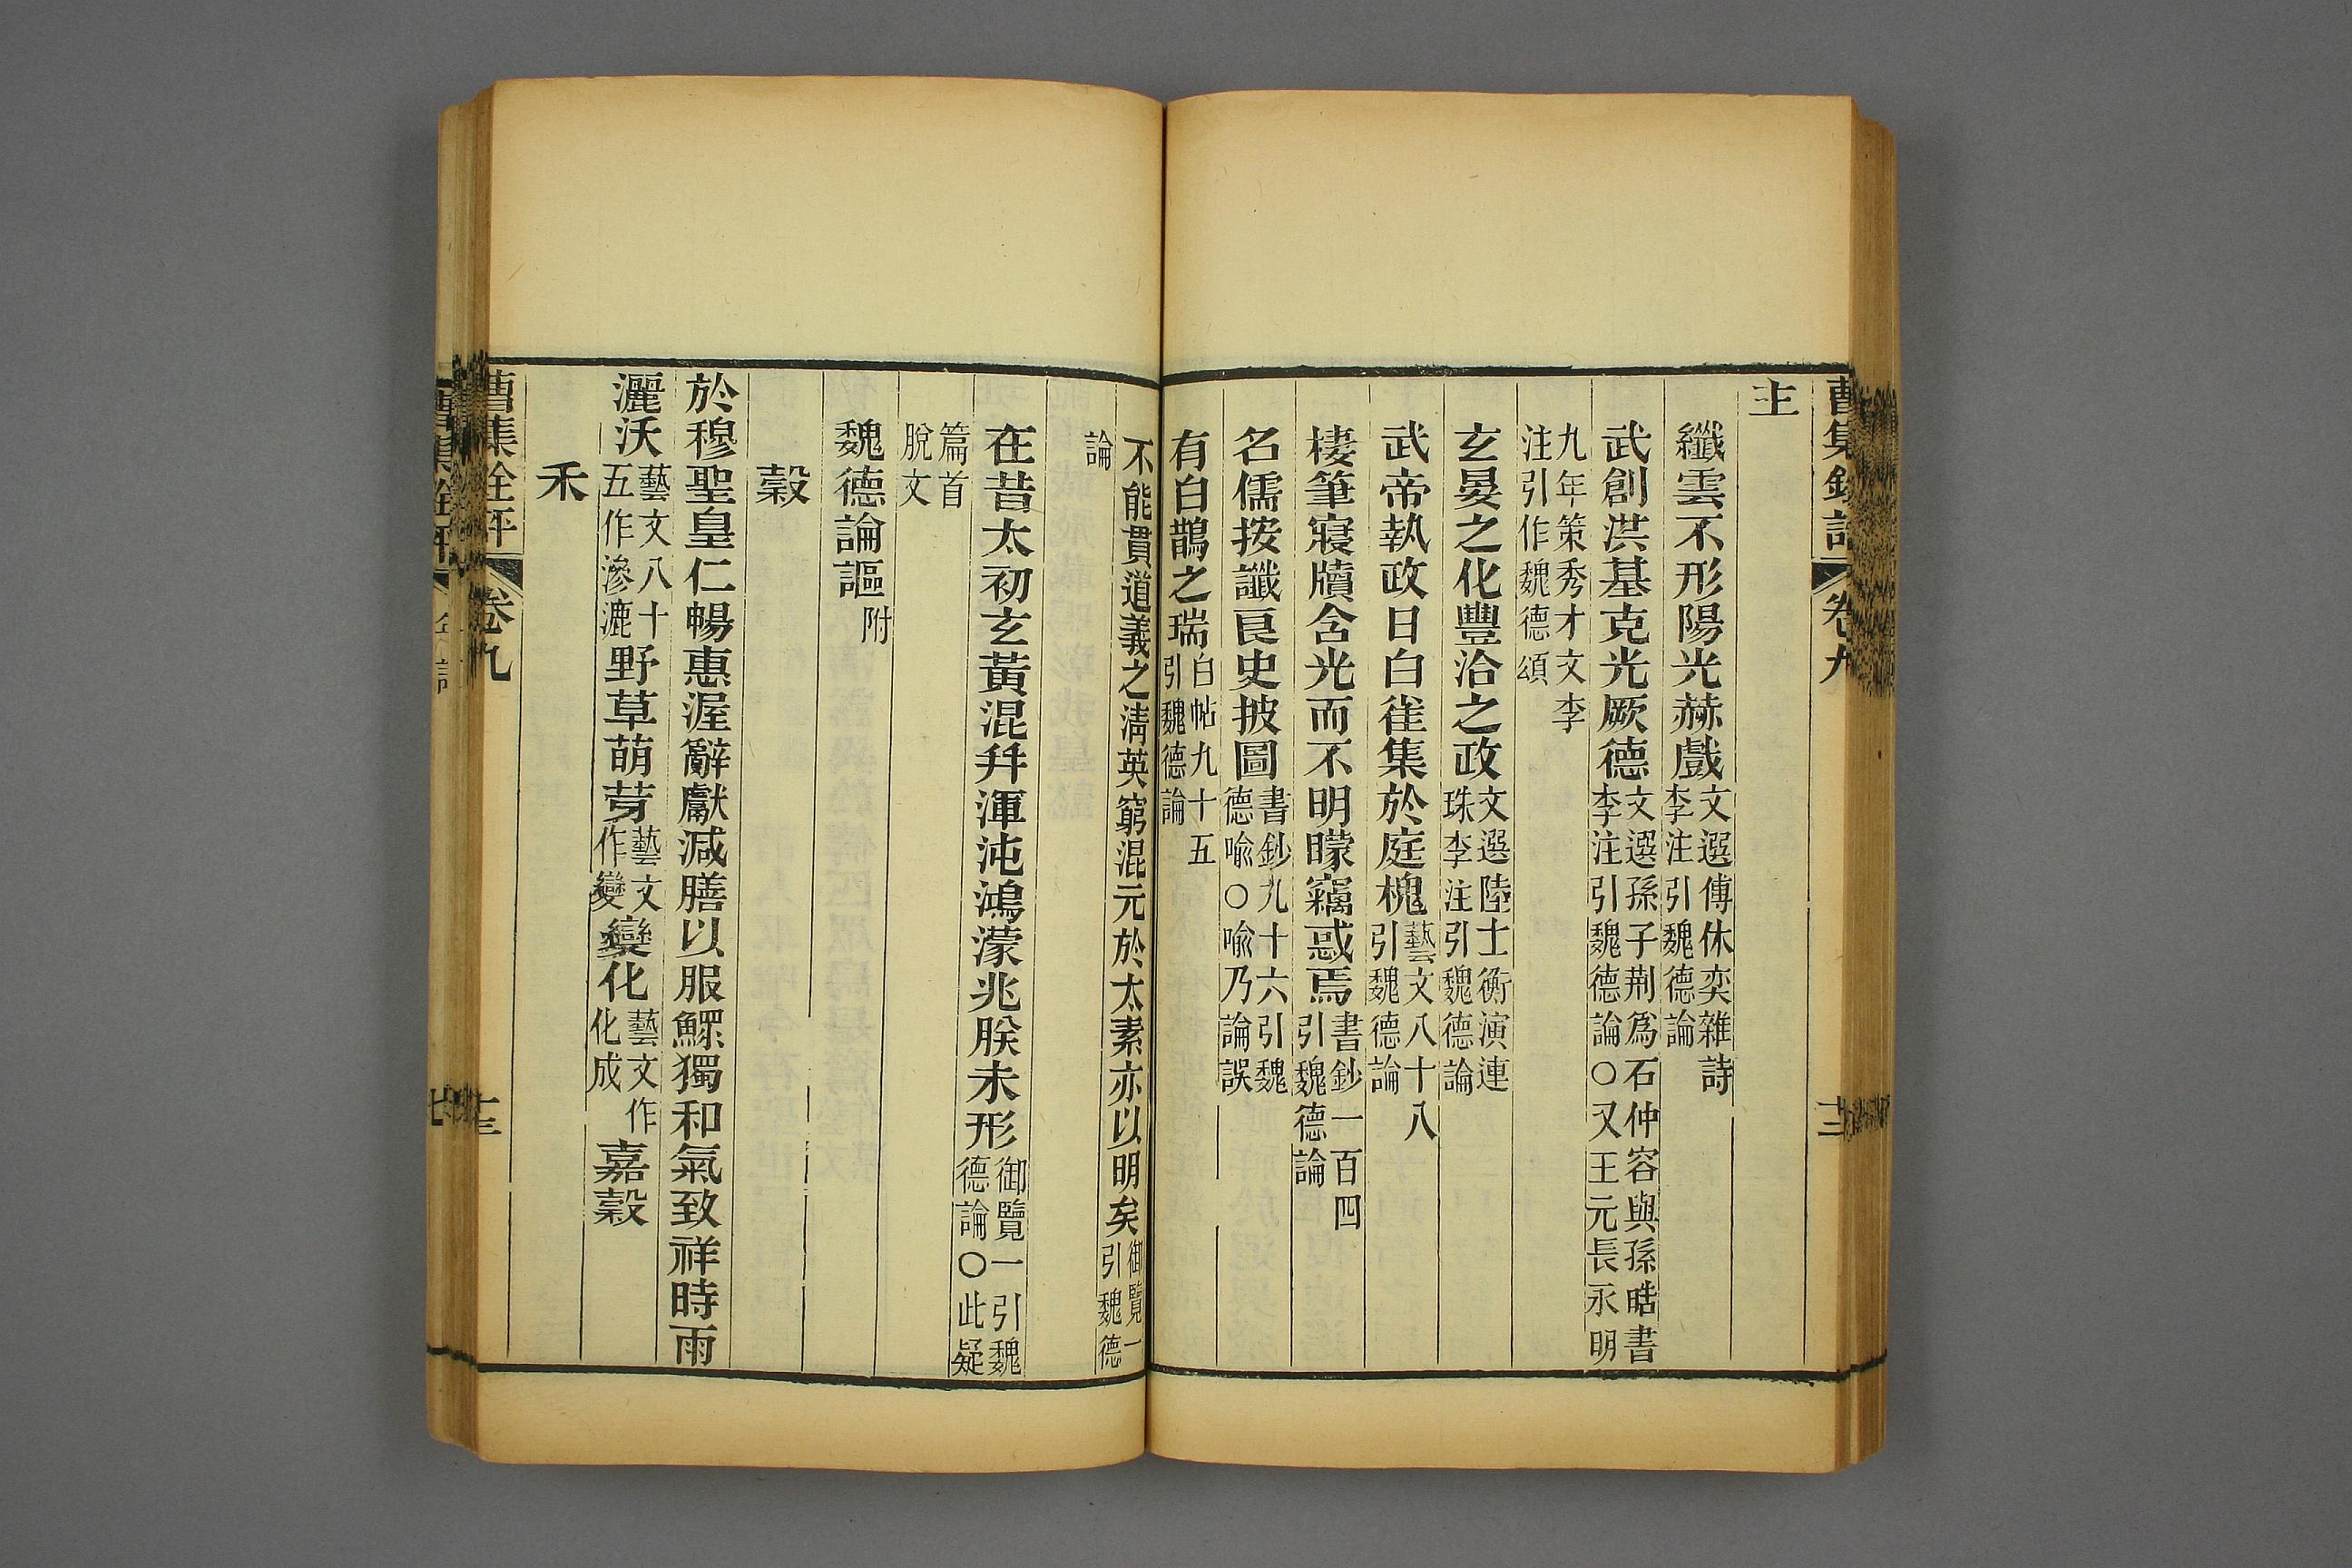 曹集銓評 卷九 十三
主
纖雲不形陽光赫戲文選傅休奕雜詩李注引魏德論
武創洪基克光厥德文選孫子荆爲石仲容與孫晧書李注引魏德論○又王元長永明
九年策秀才文李注引作魏德頌
玄晏之化豐洽之政文選陸士衡演連珠李注引魏德論
武帝執政日白雀集於庭槐藝文八十八引魏德論
棲筆寢牘含光而不明矇竊惑焉書鈔一百四引魏德論
名儒按讖良史披圖書鈔九十六引魏德喻○喻乃論誤
有白鵲之瑞白帖九十五引魏德論
不能貫道義之淸英窮混元於太素亦以明矣御覽一引魏德
論
在昔太初玄黃混幷渾沌鴻濛兆朕未形御覽一引魏德論○此疑
篇首脫文
魏德論謳附
穀
於穆聖皇仁暢惠渥辭獻減膳以服鰥獨和氣致祥時雨
灑沃藝文八十五作滲漉野草萌芽藝文作變變化藝文作化成嘉穀
禾
曹集銓評 卷九 十三